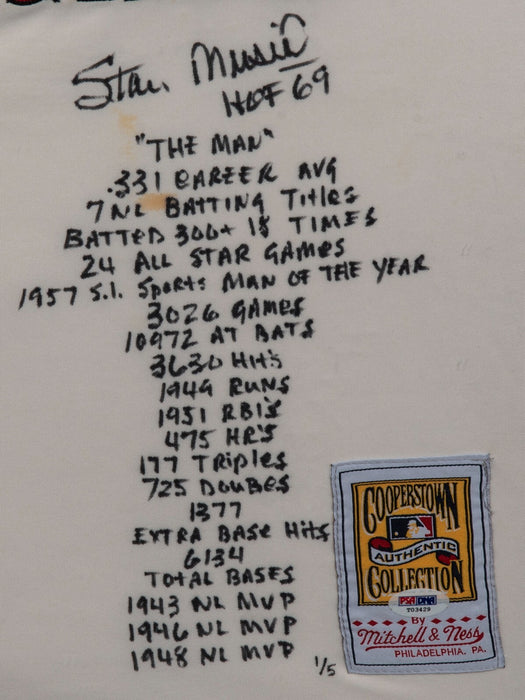 Stan Musial
HOF 69
"THE MAN"
.331 CAREER AVG
7 NL BATTING TITLES
BATTED 300+ 18 TIMES
24 ALL STAR GAMES
1957 S.I. SPORTS MAN OF THE YEAR
3026 GAMES
10972 AT BATS
3630 HITS
1949 RUNS
1951 RBI'S
475 HR'S
177 TRIPLES
725 DOUBLES
1377
EXTRA BASE HITS
6134
TOTAL BASES
1943 NL MVP
1946 NL MVP
1948 NL MVP
1/5
COOPERSTOWN
AUTHENTIC
COLLECTION
PSA DNA
T03429
BY
Mitchell & Ness
PHILADELPHIA, PA.